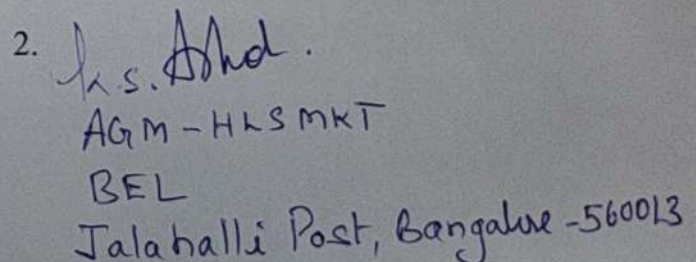 2.
AGM - HLS MKT
BEL
Jalahalli Post, Bangalore - 560013